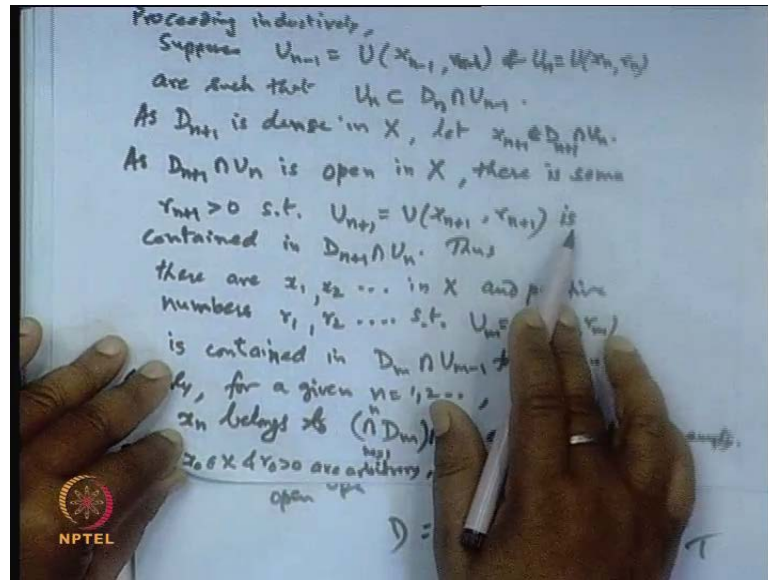 Proceeding inductively,
Suppose U_{n-1} = U(x_{n-1}, r_{n-1}) & U_n = U(x_n, r_n)
are such that U_n ⊂ D_n ∩ U_{n-1}.
As D_{n+1} is dense in X, let x_{n+1} ∈ D_{n+1} ∩ U_n.
As D_{n+1} ∩ U_n is open in X, there is some
r_{n+1} > 0 s.t. U_{n+1} = U(x_{n+1}, r_{n+1}) is
contained in D_{n+1} ∩ U_n. Thus
there are x_1, x_2 ... in X and
numbers r_1, r_2 .... s.t. U_m = r_m)
is contained in D_m ∩ U_{m-1}
for a given n = 1, 2 ...,
x_n belongs to (∩_{m=1}^{n} D_m)
x_0 ∈ X & r_0 > 0 are arbitrary,
open
D =
NPTEL